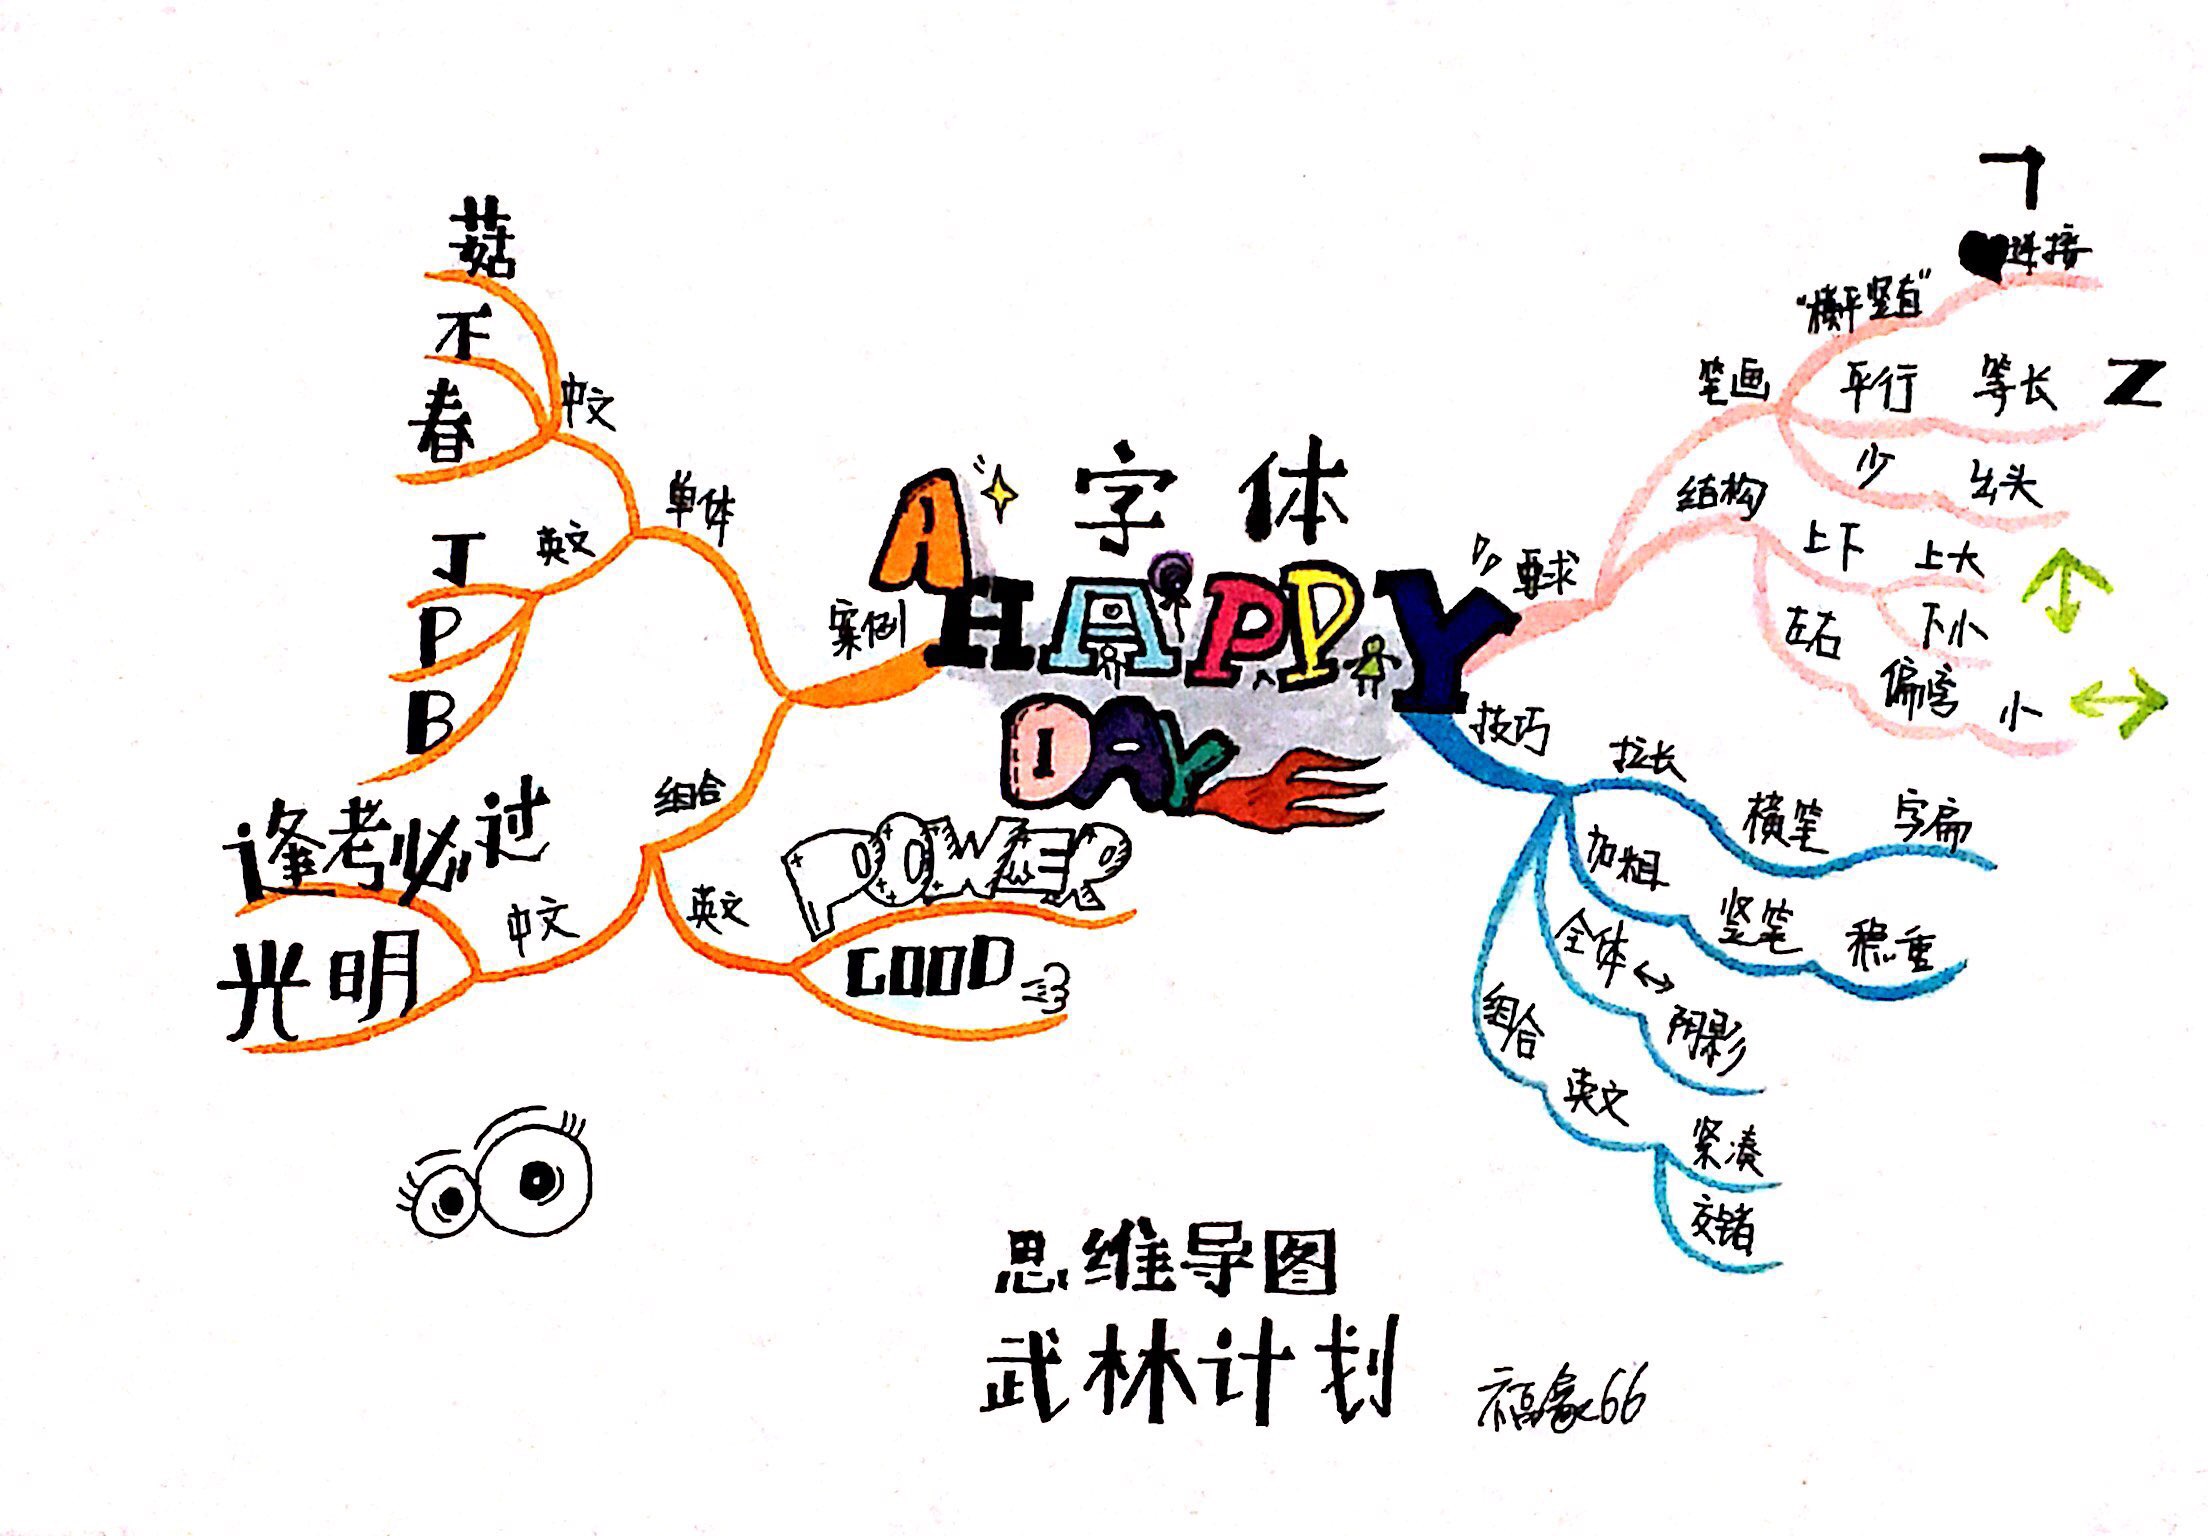 字体
A
HAPPY
DAY
要求
笔画
"横平竖直"
连接
平行 等长 Z
少 出头
结构
上下 上大
下小
左右 偏旁 小
技巧
拉长 横笔 字扁
加粗 竖笔 稳重
全体 阴影
组合 英文 紧凑
交错
案例
单体
中文
菇
不
春
英文
J
P
B
组合
中文
逢考必过
光明
英文
POWER
GOOD
思维导图
武林计划
福象66